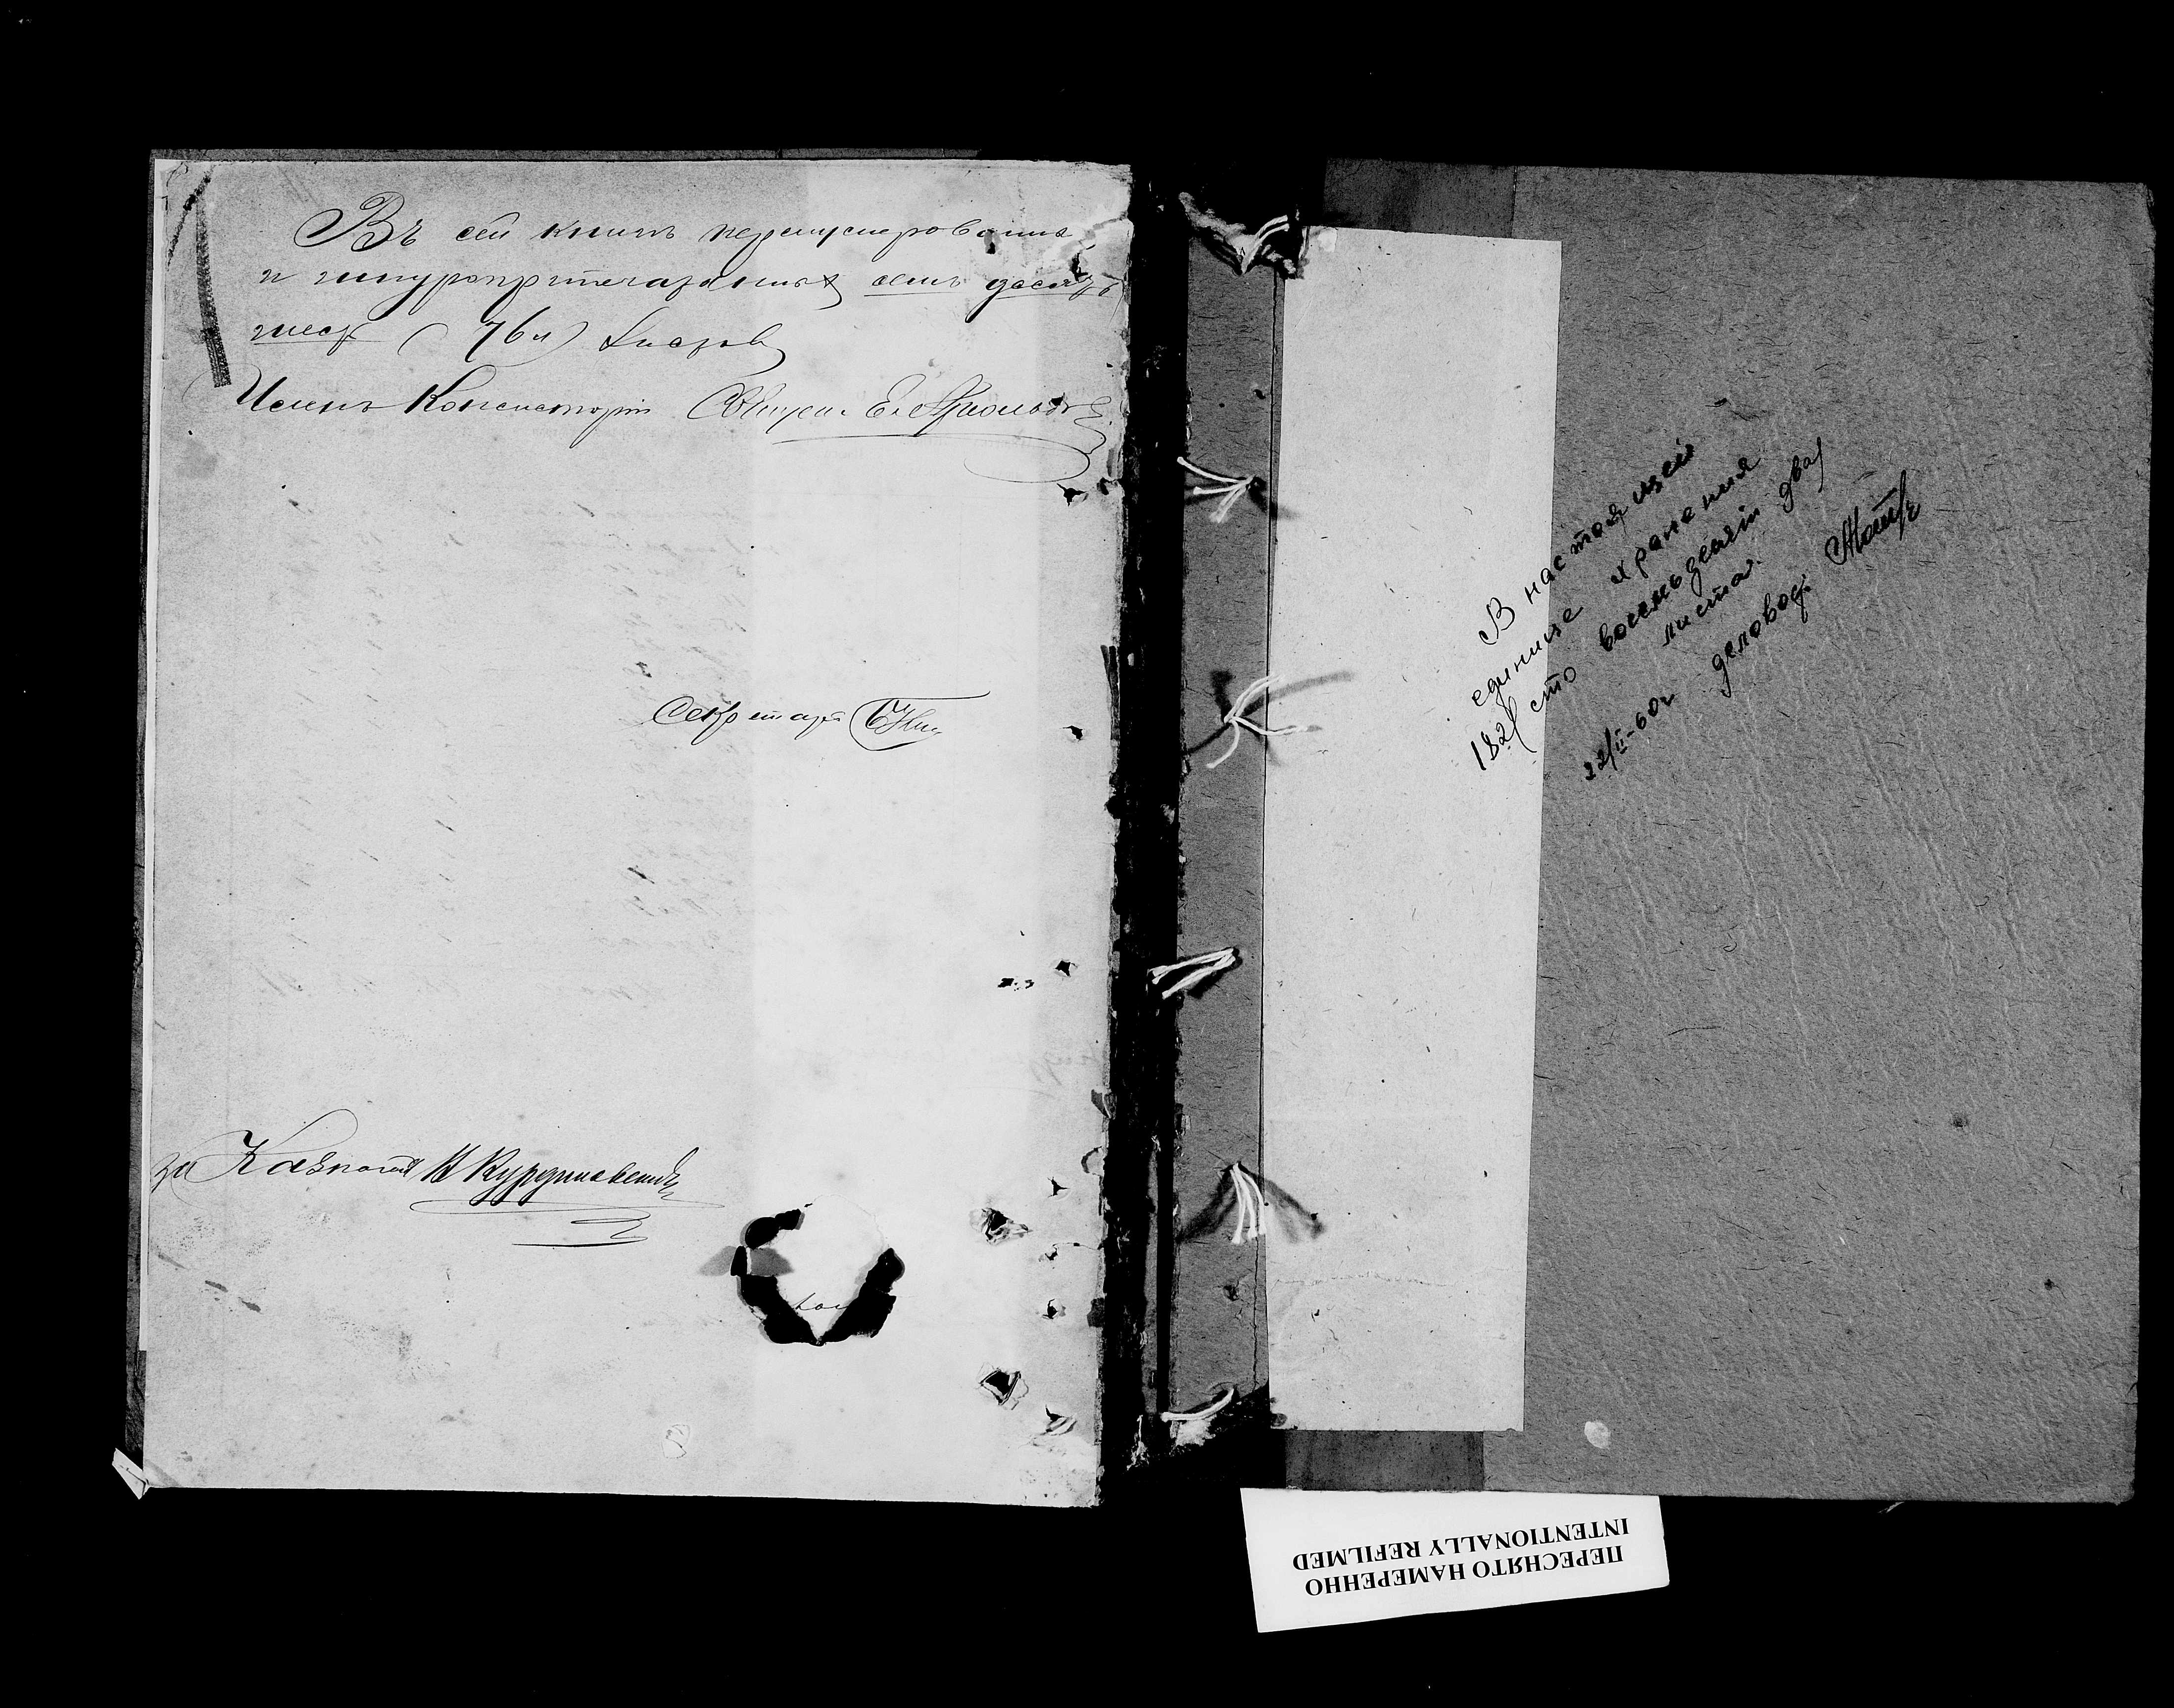 Въ сей книгѣ перенумерованныхъ
и шнуропрпечатанныхъ семьдесятъ
шесть (76 л) листовъ
Членъ Консисторіи Священ. Е.
Секретарь
за Казначея Н Курдиновскій
В настоящей
единице хранения
182/ сто восемьдесят два/
листа.
22/II-60г деловод.
ПЕРЕСНЯТО НАМЕРЕННО
INTENTIONALLY REFILMED